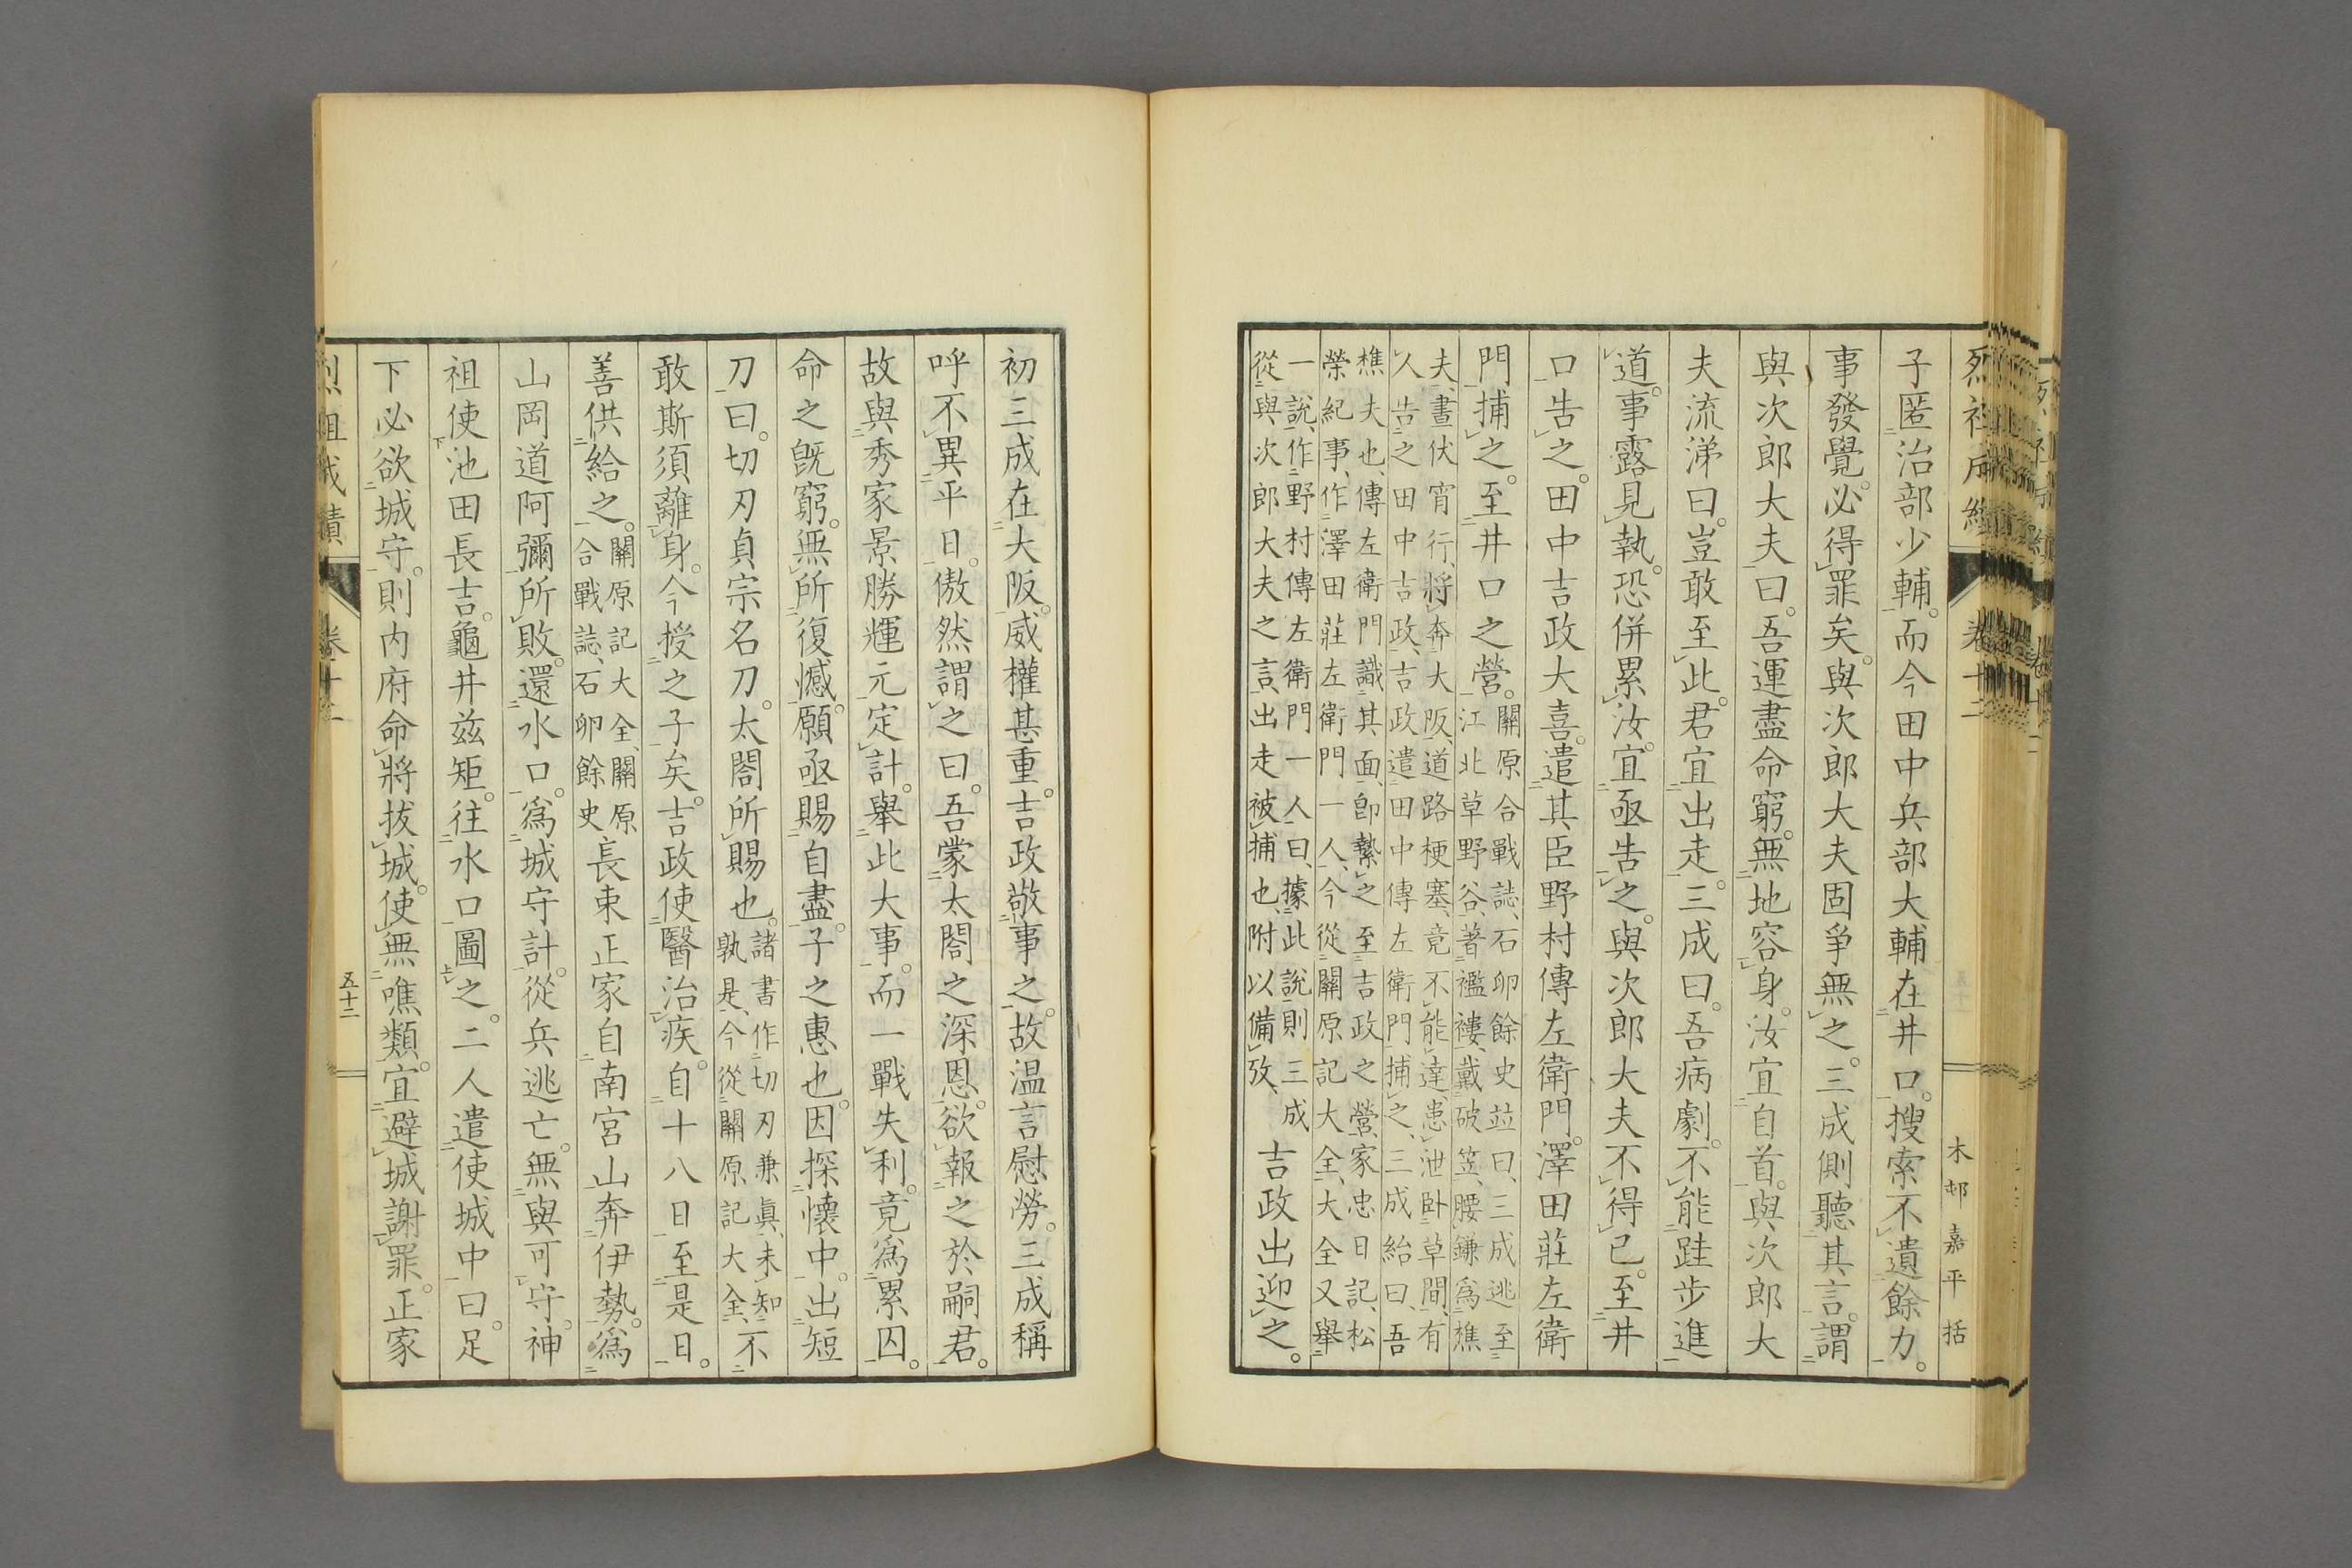 烈祖成績
卷十二
木邨嘉平括
子匿治部少輔。而今田中兵部大輔在井口。搜索不遺餘力。
事發覺。必得罪矣。與次郎大夫固爭無之。三成側聽其言。謂
與次郎大夫曰。吾運盡命窮。無地容身。汝宜自首。與次郎大
夫流涕曰。豈敢至此。君宜出走。三成曰。吾病劇。不能跬步進
道。事露見執。恐併累汝。宜亟告之。與次郎大夫不得已。至井
口告之。田中吉政大喜。遣其臣野村傳左衛門。澤田莊左衛
門捕之。至井口之營。
關原合戰誌、石卵餘史竝曰、三成逃至
江北草野谷、著襤褸、戴破笠、腰鎌爲樵
夫、晝伏宵行、將奔大阪、道路梗塞、竟不能達、患泄卧草間、有
人告之田中吉政、吉政遣田中傳左衛門捕之、三成紿曰、吾
樵夫也、傳左衛門識其面、卽縶之至吉政之營、家忠日記、松
榮紀事、作澤田莊左衛門一人、今從關原記大全、大全又擧
一說、作野村傳左衛門一人曰、據此說則三成
從與次郎大夫之言、出走被捕也、附以備攷、
吉政出迎之。
初三成在大阪。威權甚重。吉政敬事之。故温言慰勞。三成稱
呼不異平日。傲然謂之曰。吾蒙太閤之深恩。欲報之於嗣君。
故與秀家景勝輝元定計。擧此大事。而一戰失利。竟爲累囚。
命之旣窮。無所復憾。願亟賜自盡。子之惠也。因探懷中。出短
刀曰。切刃貞宗名刀。太閤所賜也。
諸書作切刃兼眞、未知
孰是、今從關原記大全、
不
敢斯須離身。今授之子矣。吉政使醫治疾。自十八日至是日。
善供給之。
關原記大全、關原
合戰誌、石卵餘史
長束正家自南宮山奔伊勢。爲
山岡道阿彌所敗。還水口。爲城守計。從兵逃亡。無與可守。神
祖使池田長吉。龜井茲矩。往水口圖之。二人遣使城中曰。足
下必欲城守。則内府命將拔城。使無噍類。宜避城謝罪。正家
烈祖成績
卷十二
五十二